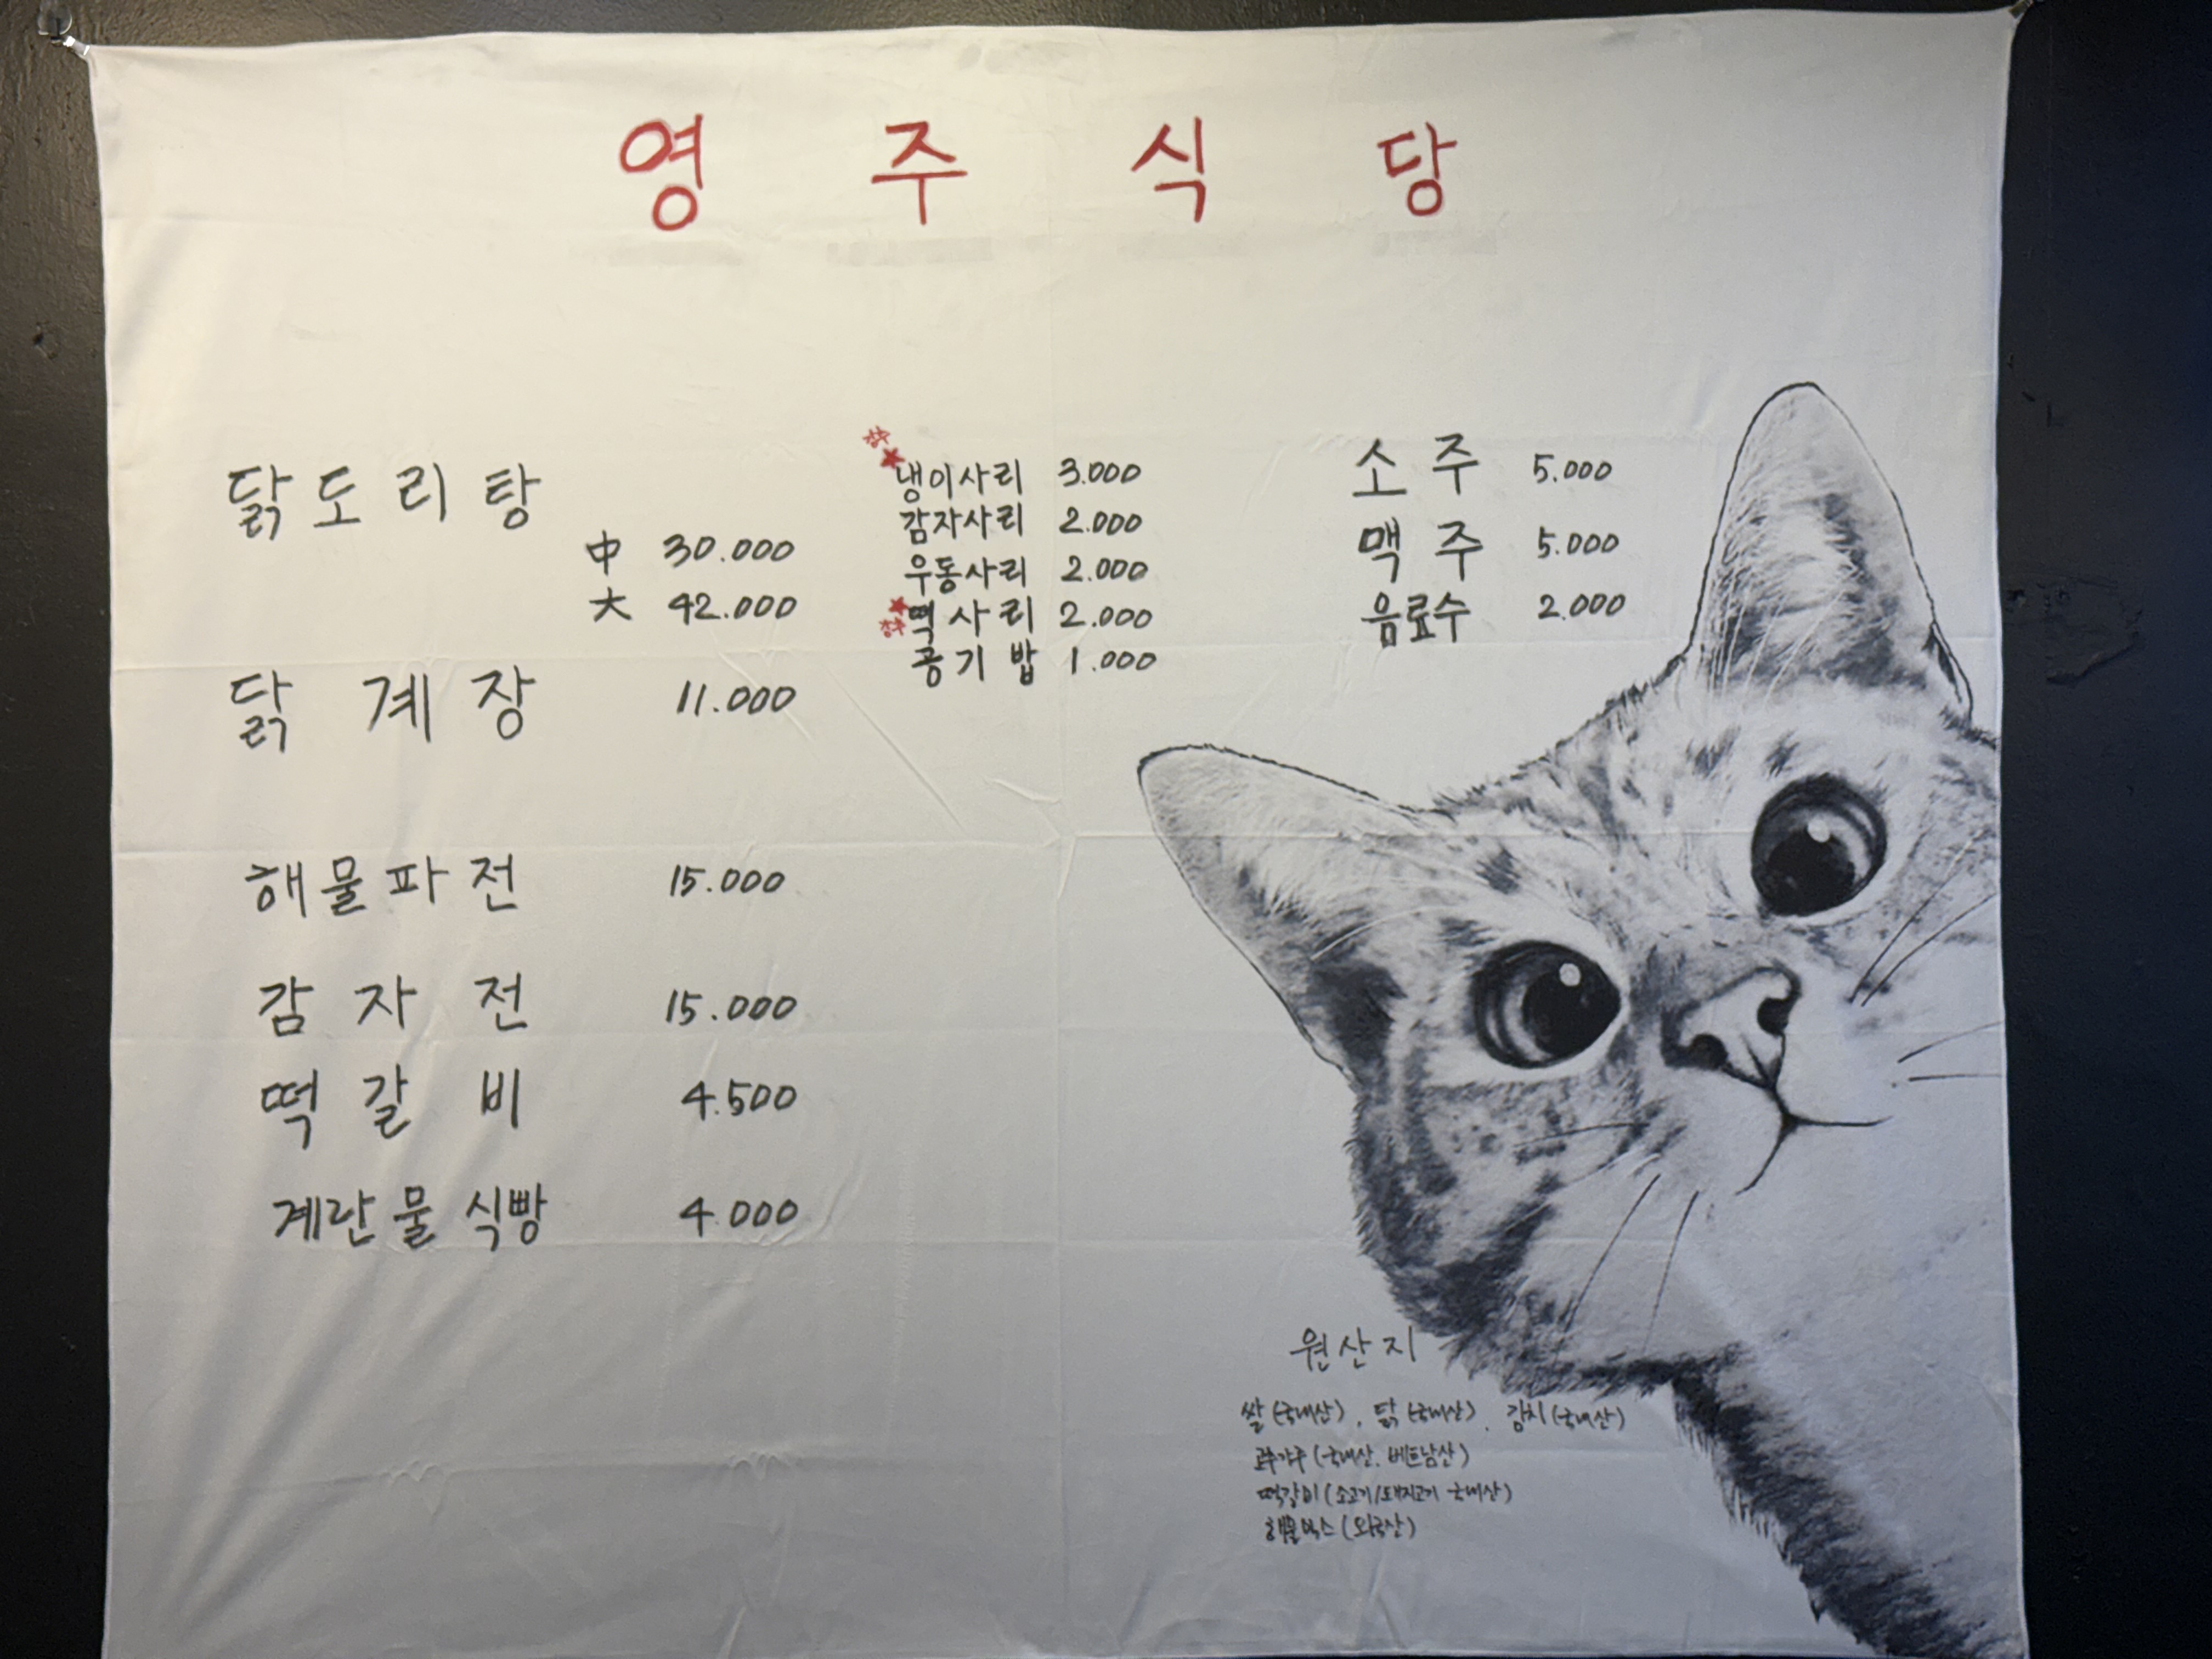 영주식당
닭도리탕
中 30.000
大 42.000
닭계장 11.000
해물파전 15.000
감자전 15.000
떡갈비 4.500
계란물식빵 4.000
강추★
냉이사리 3.000
감자사리 2.000
우동사리 2.000
★강추 떡사리 2.000
공기밥 1.000
소주 5.000
맥주 5.000
음료수 2.000
원산지
쌀(국내산), 닭(국내산), 김치(국내산)
고추가루(국내산. 베트남산)
떡갈비(소고기/돼지고기 국내산)
해물믹스(외국산)